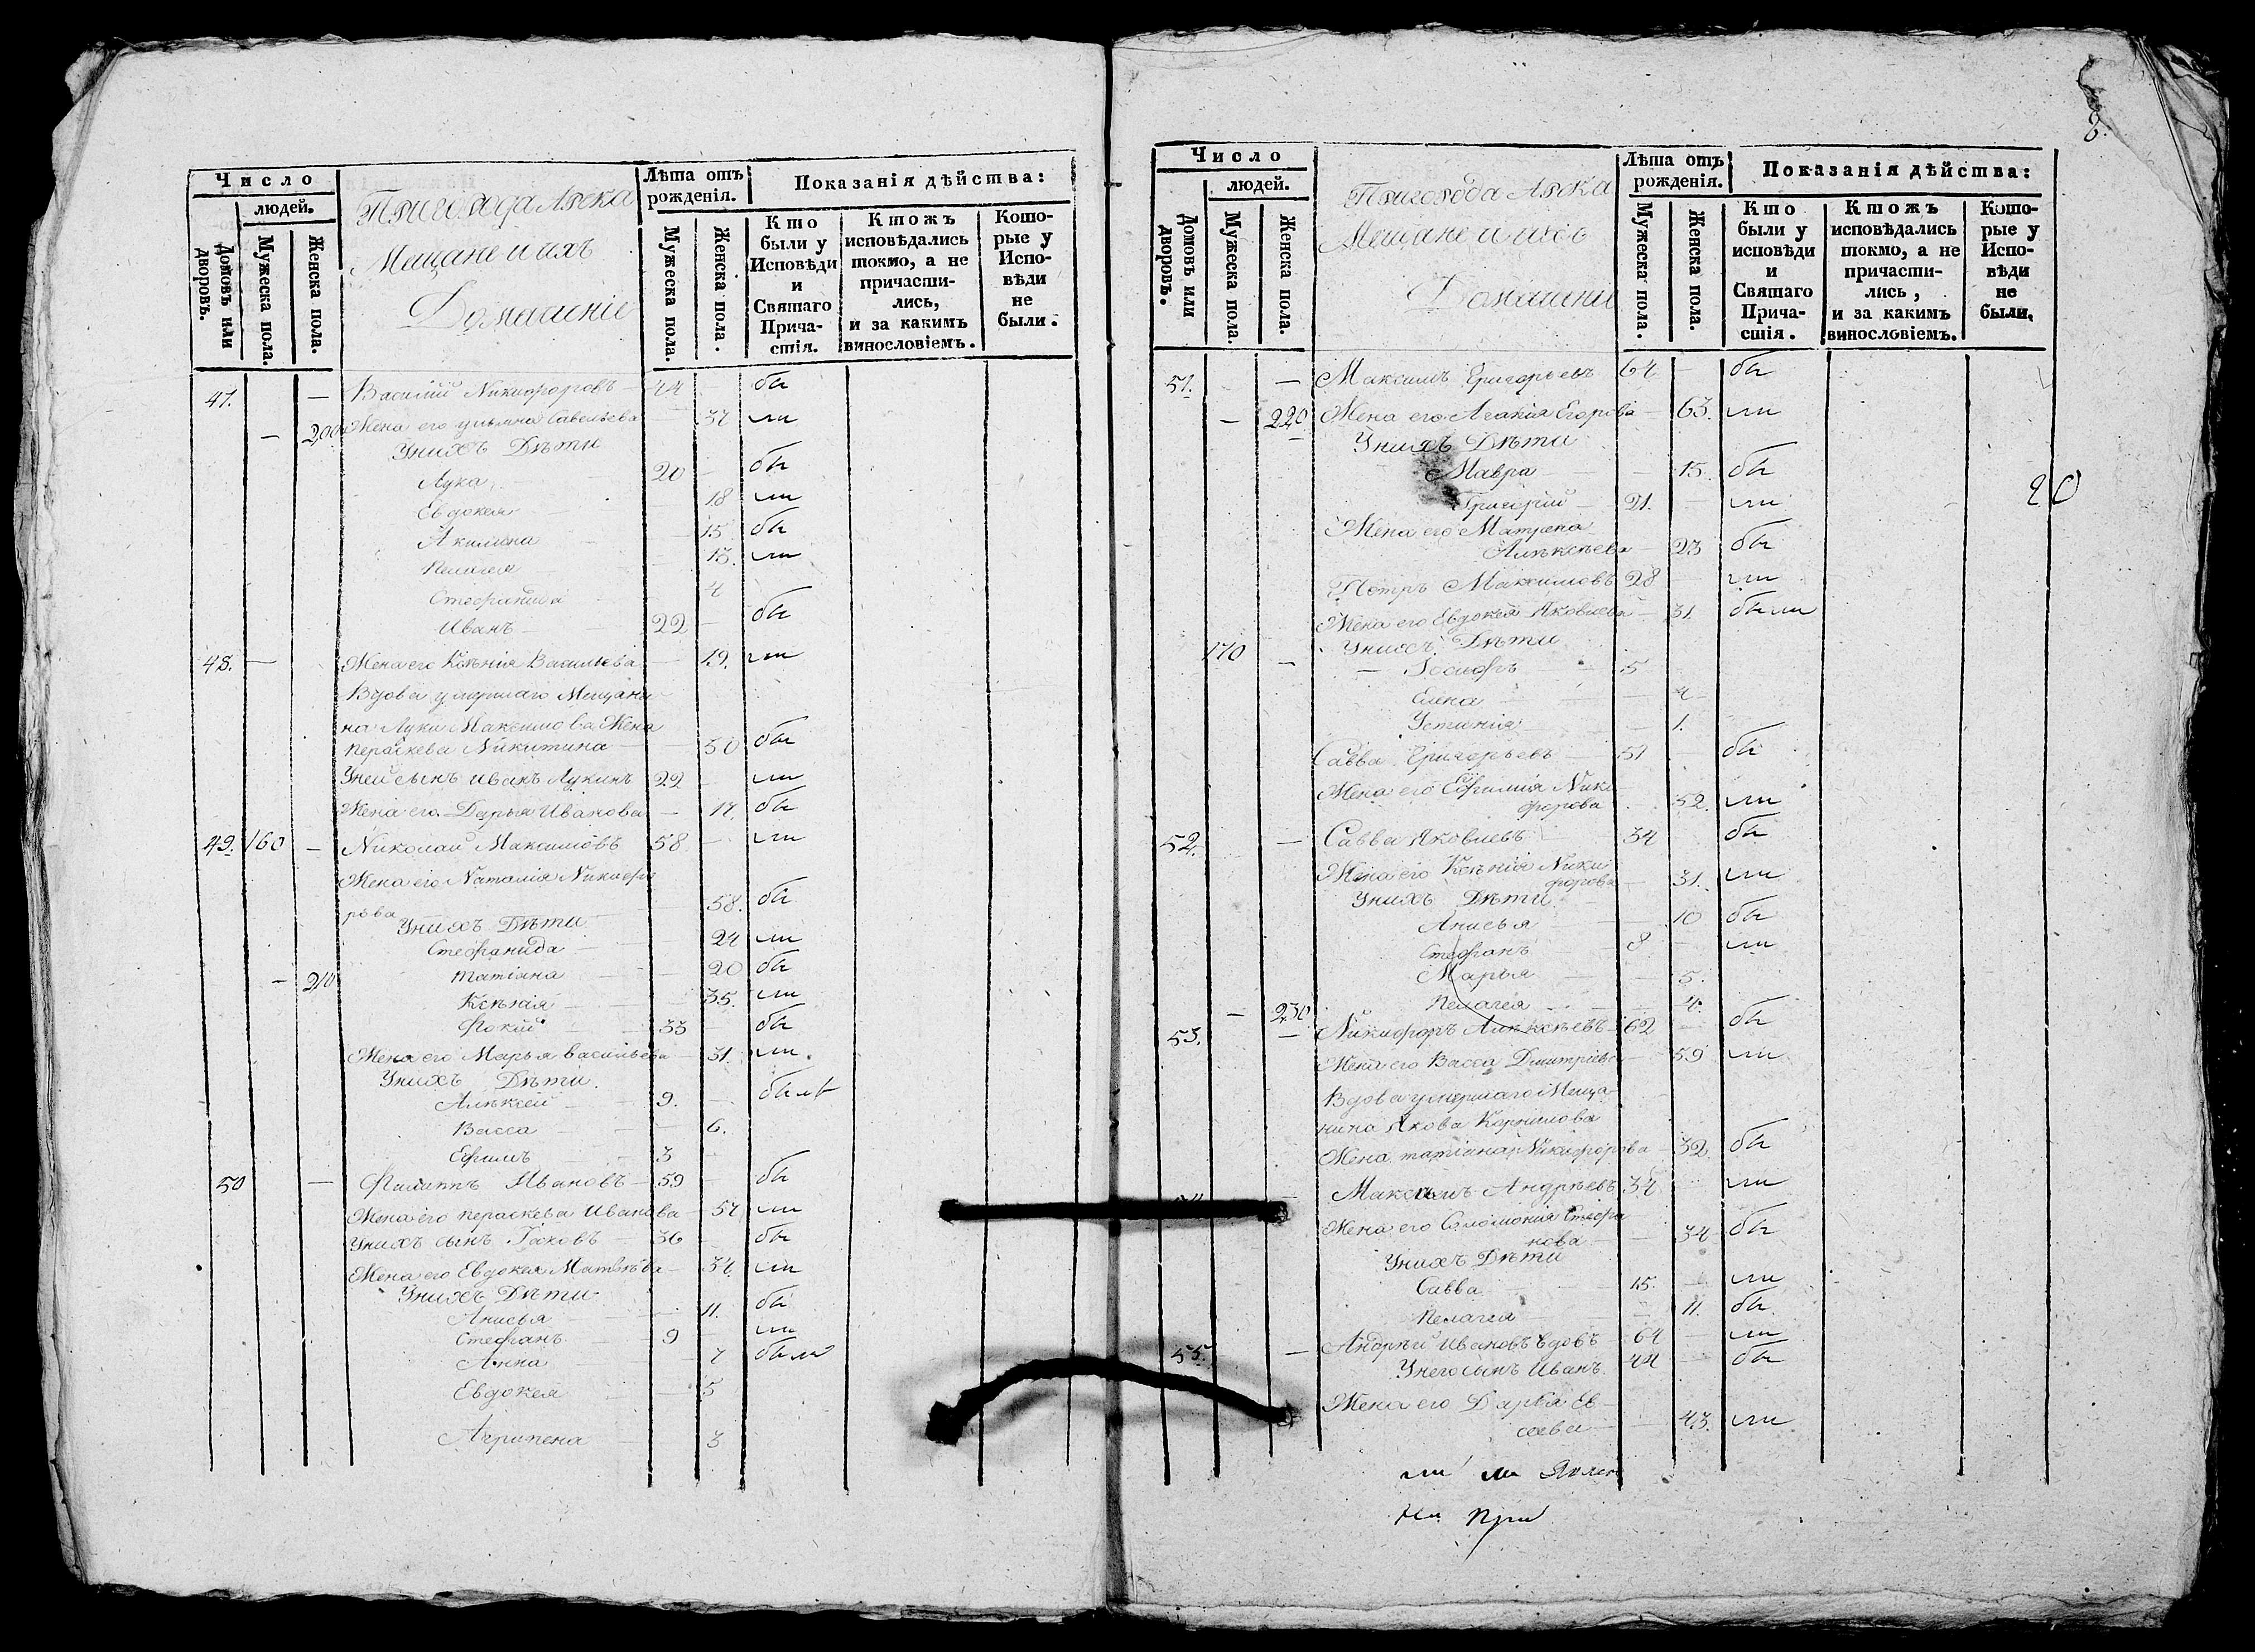 Число
людей.
Домовъ или дворовъ.
Мужеска пола.
Женска пола.
Пригорода Арска
Мещане и ихъ
Домашніе
Лѣта отъ рожденія.
Мужеска пола.
Женска пола.
Показанія дѣйства:
Кто были у Исповѣди и Святаго Причастія.
Ктожъ исповѣдались токмо, а не причастились, и за какимъ винословіемъ.
Которые у Исповѣди не были.
47. — Василій Никифоровъ 44 — бы
— 200 Жена его ульяна Савельева 37 ли
Унихъ Дѣти
Лука 20 — бы
Евдокея 18 ли
Акилина 15. бы
Пелагея 13. ли
Стефанида 4
Иванъ 22 — бы
48. — Жена его Ксѣнія Васильева — 19. ли
Вдова умершаго Мещани
на Луки Максимова Жена
Параскева Никитина 50 бы
Уней сынъ иванъ Лукинъ 22 — ли
Жена его Дарья Иванова — 17. бы
49. 160 — Николай Максимовъ 58. — ли
Жена его Наталія Никифо
рова 58. бы
Унихъ Дѣти
Стефанида 24 ли
— 210 Татіана 20 бы
Ксѣнія 35. ли
Фокій 33 — бы
Жена его Марья васильева — 31. ли
Унихъ Дѣти.
Алѣксѣй 9. — былъ
Васса 6.
Ефимъ 3
50 — Филиппъ Ивановъ 59 — бы
Жена его параскева Иванова 57 ли
Унихъ сынъ Іаковъ 36 — бы
Жена его Евдокея Матвѣева 34. ли
Унихъ Дѣти
Анисья 11. бы
Стефанъ 9 — ли
Анна 7 были
Евдокея 5
Агрипена 3
8.
Число
людей.
Домовъ или дворовъ.
Мужеска пола.
Женска пола.
Пригорода Арска
Мещане и ихъ
Домашніе
Лѣта отъ рожденія.
Мужеска пола.
Женска пола.
Показанія дѣйства:
Кто были у исповѣди и Святаго Причастія.
Ктожъ исповѣдались токмо, а не причастились, и за какимъ винословіемъ.
Которые у Исповѣди не были.
51. — Максимъ Григорьевъ 64 — бы
— 220 Жена его Агапія Егорова 63. ли
Унихъ Дѣти
Мавра — 15. бы
Григорій 21. — ли
20
Жена его Матрена
Алѣксѣева 23 бы
Петръ Максимовъ 28 — ли
Жена его Евдокея Яковлева 31. были
170 — Унихъ Дѣти
Іосифъ 5
Елена 4
Устинія 1.
Савва Григорьевъ 51 — бы
Жена его Ефимія Ники
форова 52. ли
52. — Савва Яковлевъ 34 бы
Жена его Ксѣнія Ники
форова 31. ли
Унихъ Дѣти
Анисья 10 бы
Стефанъ 8 — ли
Марья 5.
— 230 Пелагея 4.
53. — Никифоръ Алѣксѣевъ 62 — бы
Жена его Васса Дмитріева 59 ли
Вдова умершаго Меща
нина Якова Корнилова
Жена татіана Никифорова 32. бы
— Максимъ Андрѣевъ 37 ли
Жена его Соломонія Стефа
нова 34 бы
Унихъ Дѣти
Савва 15. — ли
Пелагея 11. бы
55. — Андрѣй Ивановъ вдовъ 64 — ли
Унего сынъ Иванъ 44 — бы
Жена его Дарья Ев
сеева 43. ли
ли ли
при